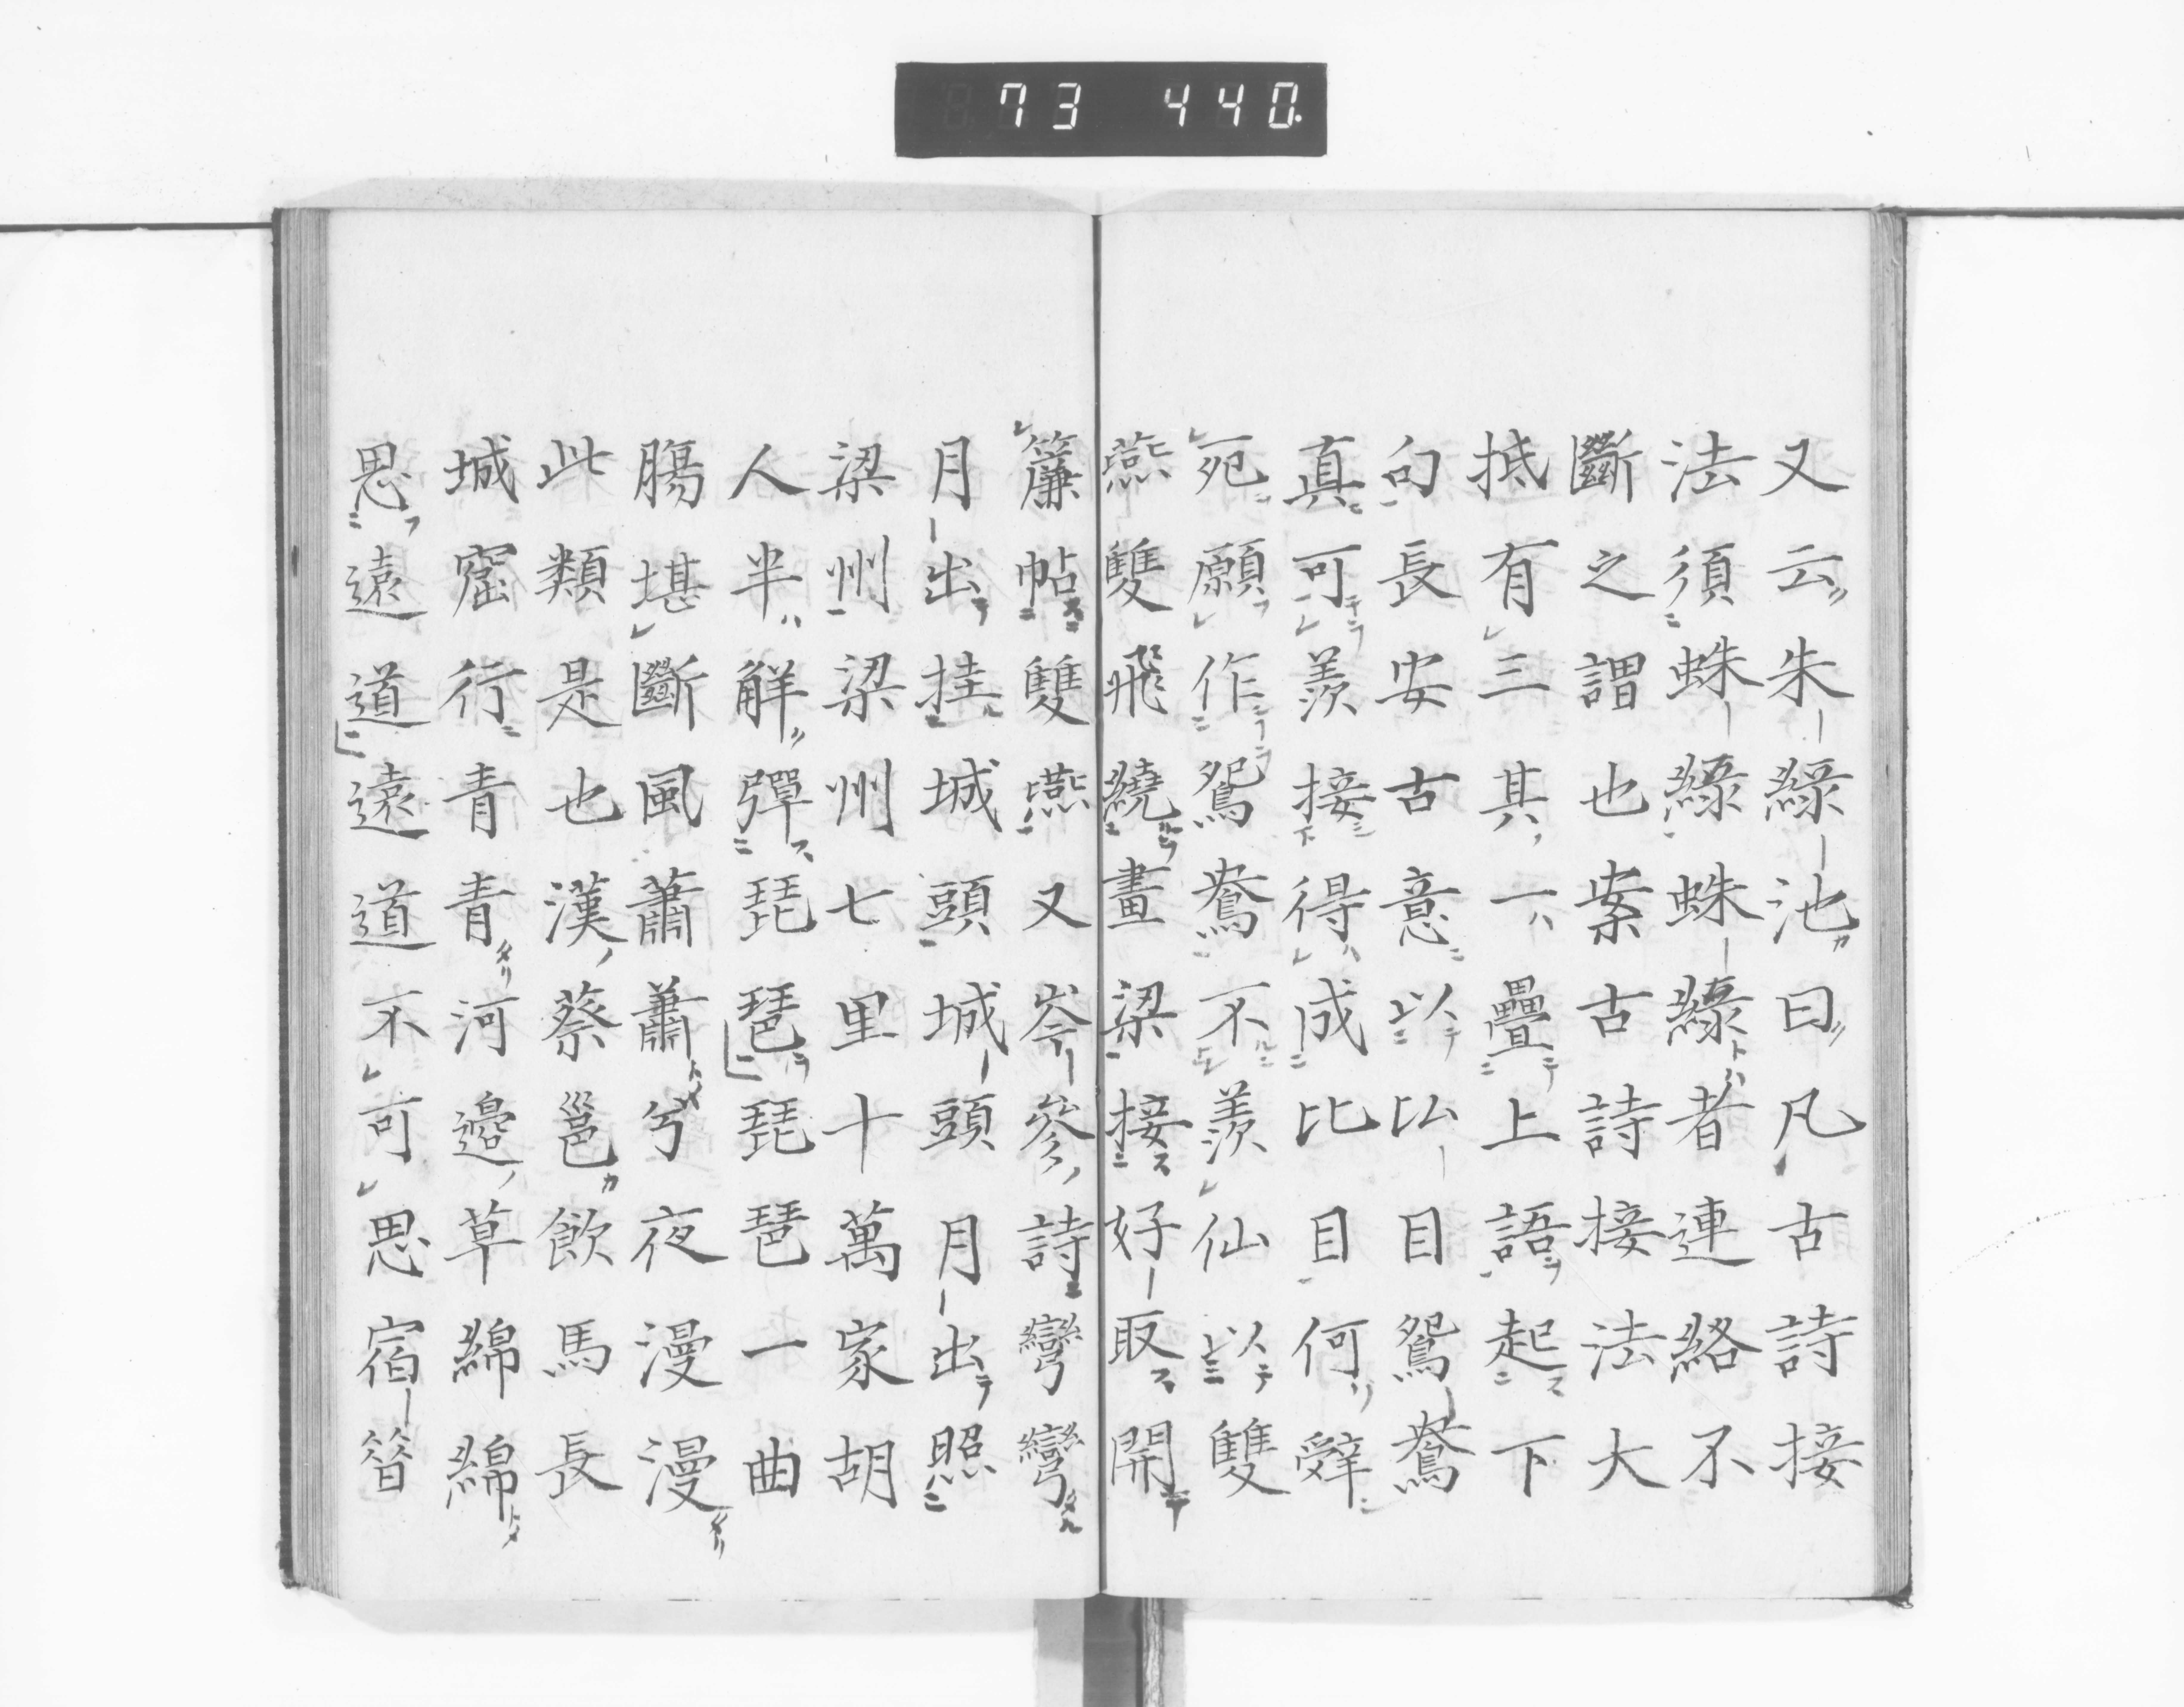 73 440.
又云朱綠池曰凡古詩接
法須蛛綠蛛綠者連絡不
斷之謂也案古詩接法大
抵有三其一疊上語起下
句長安古意以比目鴛鴦
真可羨接得成比目何辤
死願作鴛鴦不羨仙以雙
燕雙飛繞畫梁接好取開
簾帖雙燕又岑參詩彎彎
月出挂城頭城頭月出照
梁州梁州七里十萬家胡
人半解彈琵琶琵琶一曲
腸堪斷風蕭蕭兮夜漫漫
此類是也漢蔡邕飲馬長
城窟行青青河邊草綿綿
思遠道遠道不可思宿昝